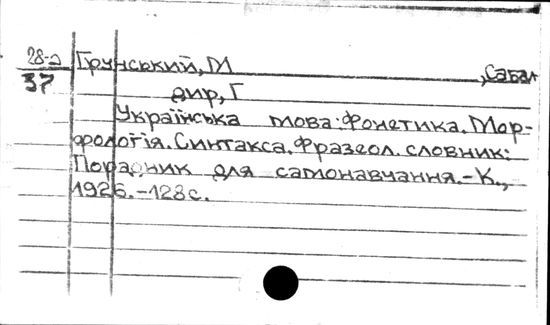 28-а Грунський, М , Сабал
37 дир, Г
Українська мова. Фонетика. Мор-
фологія. Синтакса. Фразеол. словник:
Порадник для самонавчання.-К.,
1926.-128с.